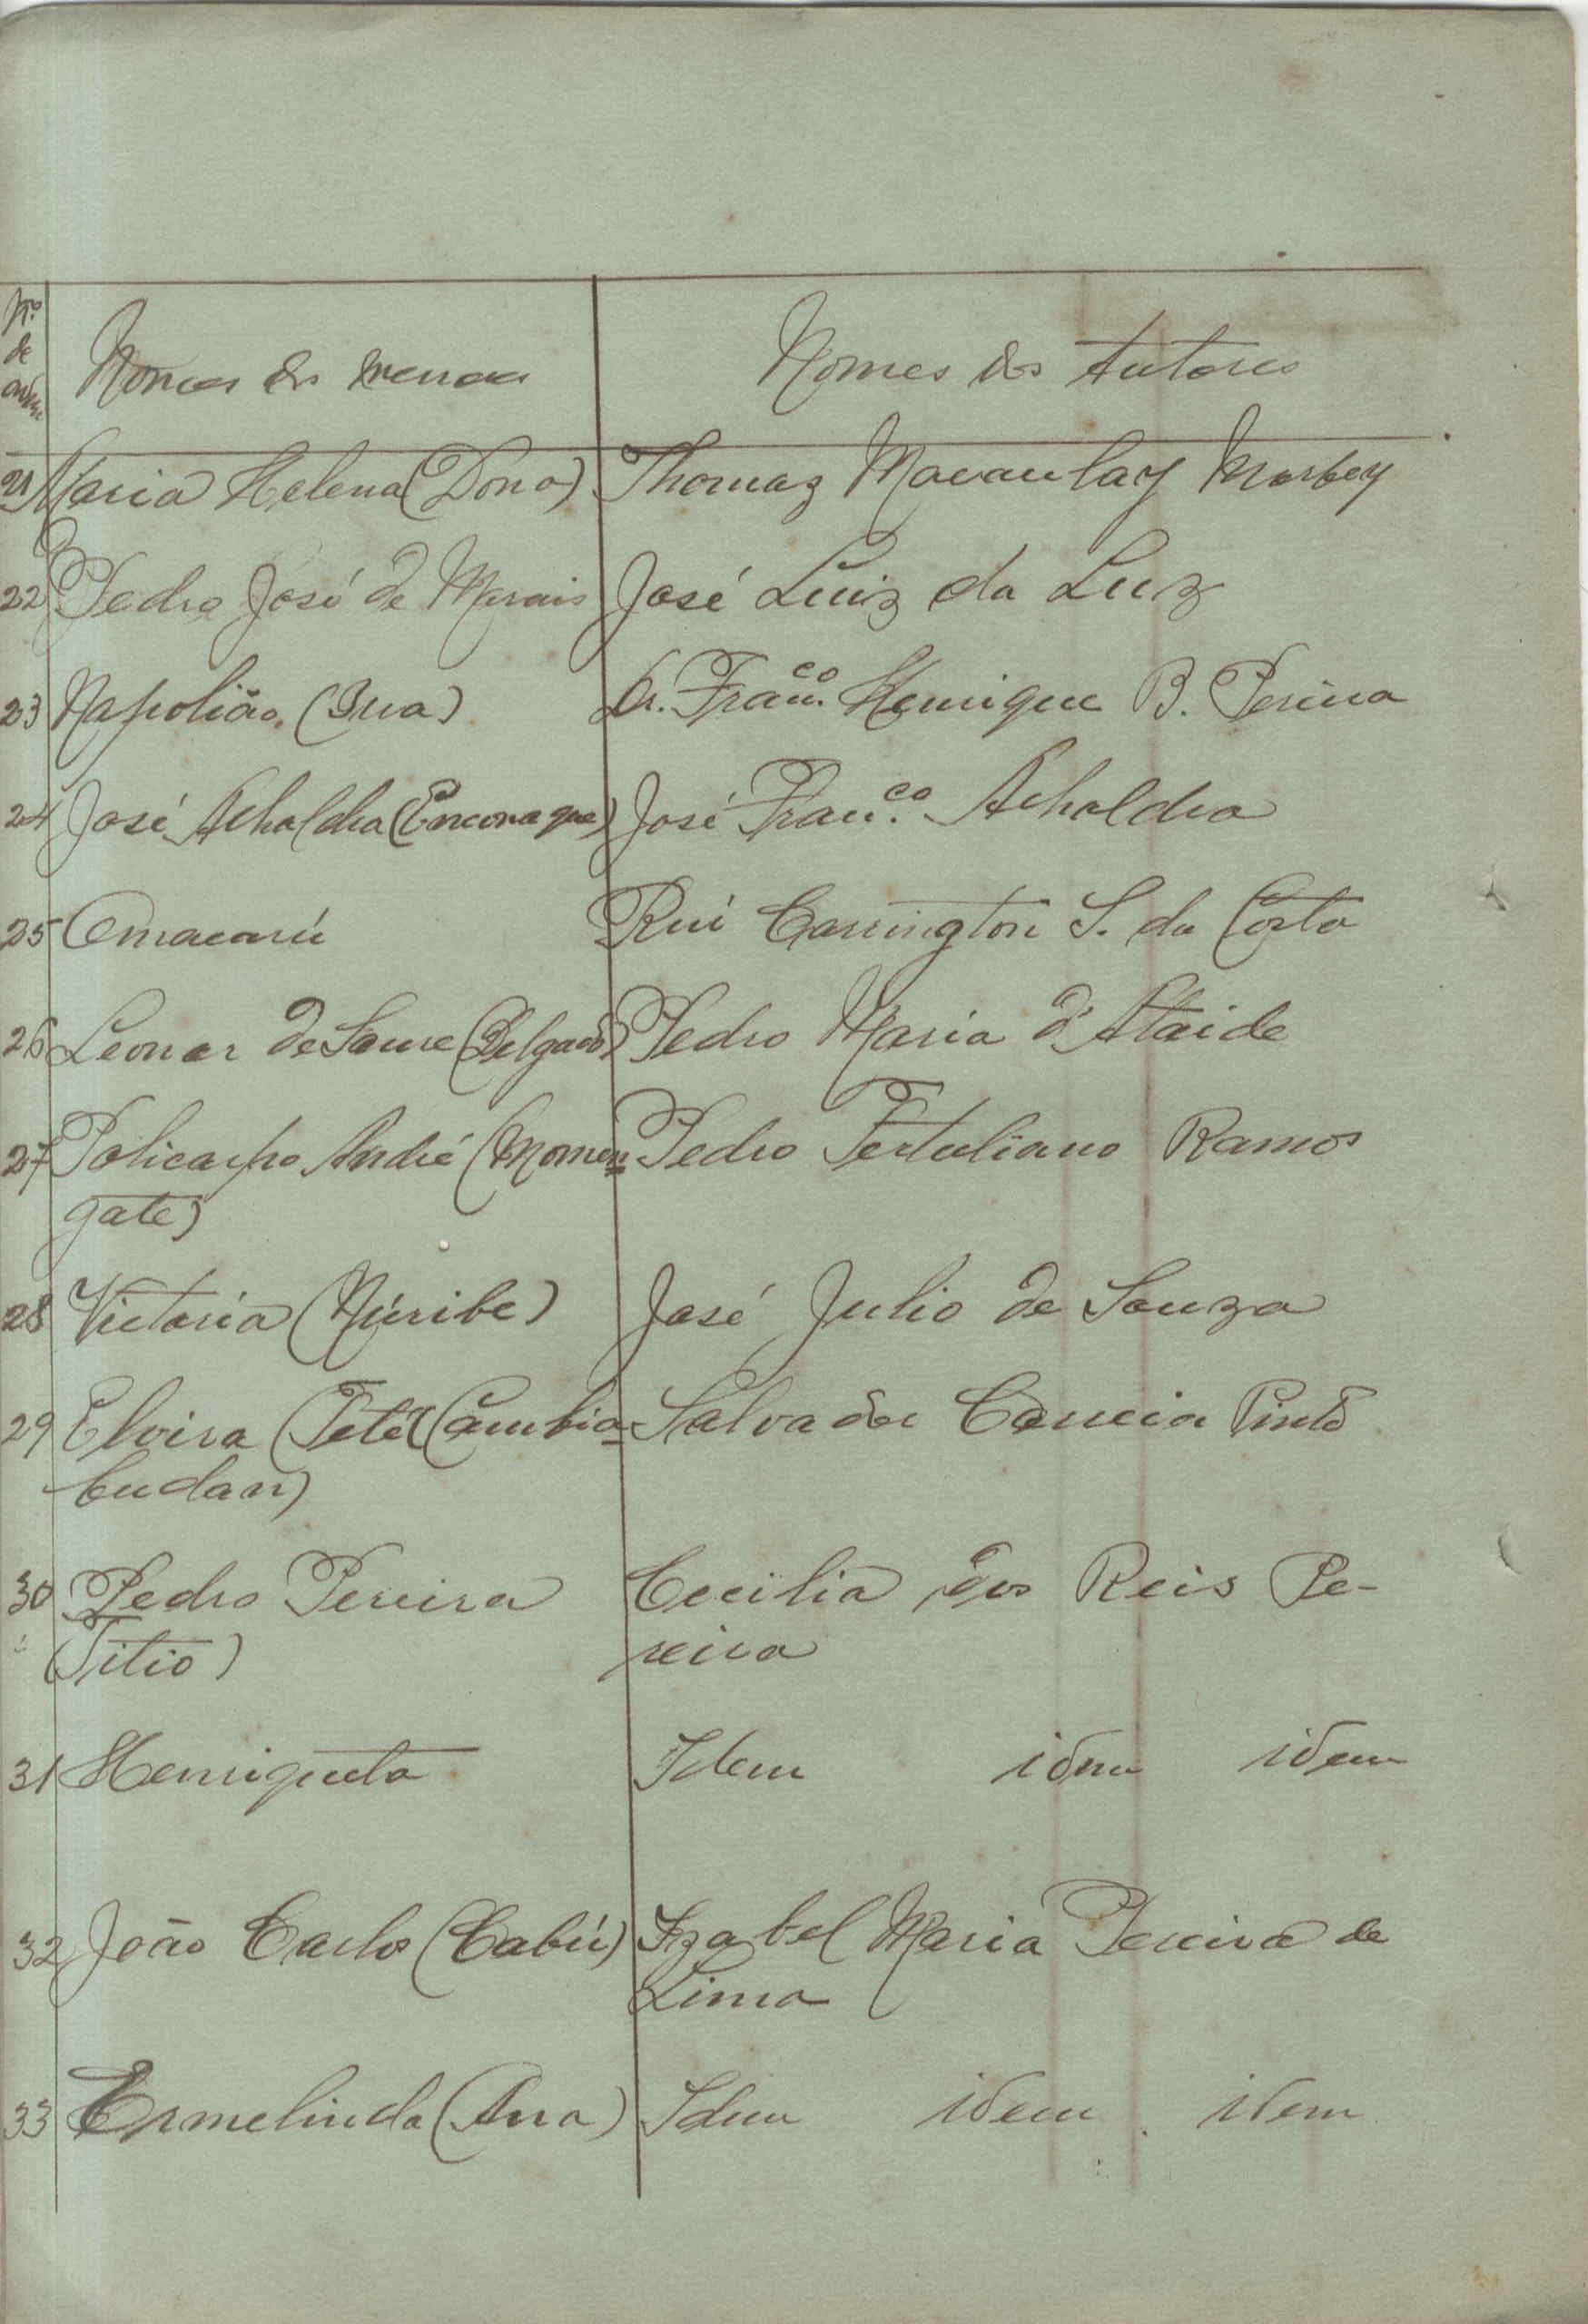 Nº de ordem
Nomes dos menores
Nomes dos Tutores
21 Maria Helena (Dona) Thomaz Macaulay Morbey
22 Pedro José de Morais José Luiz da Luz
23 Napolião (Bua) Dr. Franco. Henrique B. Pereira
24 José Achaldra José Franco. Achaldra
25 Rui Carrington S. da Costa
26 Leonor de (Delgado) Pedro Maria d'Ataide
27 Policarpo André (Momen= Pedro Tertuliano Ramos
gate)
28 Victoria (Núribe) José Julio de Souza
29 Elvira (Teté) (Cambia= Salvador Correia Pinto
budan)
30 Pedro Pereira Cecilia dos Reis Pe-
(Titio) reira
31 Henriqueta Idem idem idem
32 João Carlos (Cabú) Izabel Maria Pereira de
Lima
33 Ermelinda (Ana) Idem idem idem